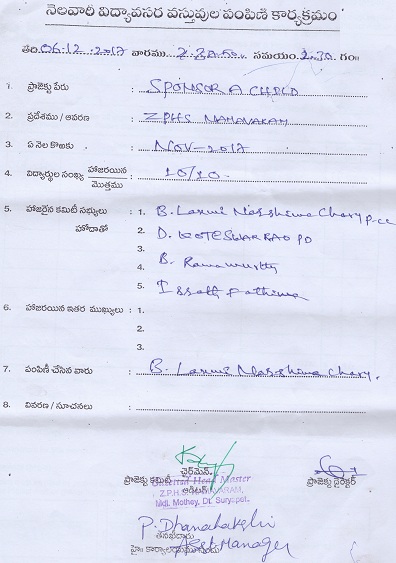 నెలవారీ విద్యావసర వస్తువుల పంపిణి కార్యక్రమం
తేది. 06.12.2017 వారము సమయం 2.30 గం॥
1. ప్రాజెక్టు పేరు : SPONSOR A CHILD
2. ప్రదేశము / ఆవరణ : ZPHS
3. ఏ నెల కొఱకు : NOV-2017
4. విద్యార్థుల సంఖ్య హాజరయిన / మొత్తము : 10/10
5. హాజరైన కమిటీ సభ్యులు : 1. B. Laxmi Narshima Chary
హోదాతో 2. D. KOTESWAR RAO PD
3.
4. B. Ramamurthy
5. Issath Fathima
6. హాజరయిన ఇతర ముఖ్యులు : 1.
2.
3.
7. పంపిణీ చేసిన వారు : B. Laxmi Narshima Chary.
8. వివరణ / సూచనలు :
ప్రాజెక్టు కమిటీ ఛైర్మెన్ ప్రాజెక్టు డైరెక్టర్
Head Master
ఆడిటర్
Z.P.H.S.
Mdl. Mothey, Dt. Suryapet.
P. Dhanalakshi
తనిఖీదారు
Asst Manager